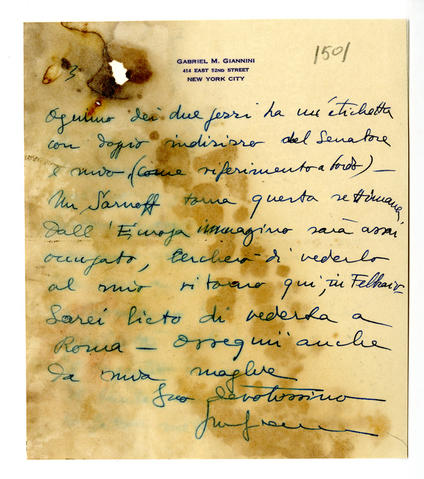 GABRIEL M. GIANNINI
414 EAST 52ND STREET
NEW YORK CITY
1501
3
Ognuno dei due pezzi ha un'etichetta
con doppio indirizzo del Senatore
e mio (come riferimento a bordo) —
Mr Sarnoff torna questa settimana
dall'Europa immagino sarà assai
occupato, cercherò di vederlo
al mio ritorno qui, in Febbraio
Sarei lieto di vederla a
Roma — Ossequi anche
da mia moglie
Suo devotissimo